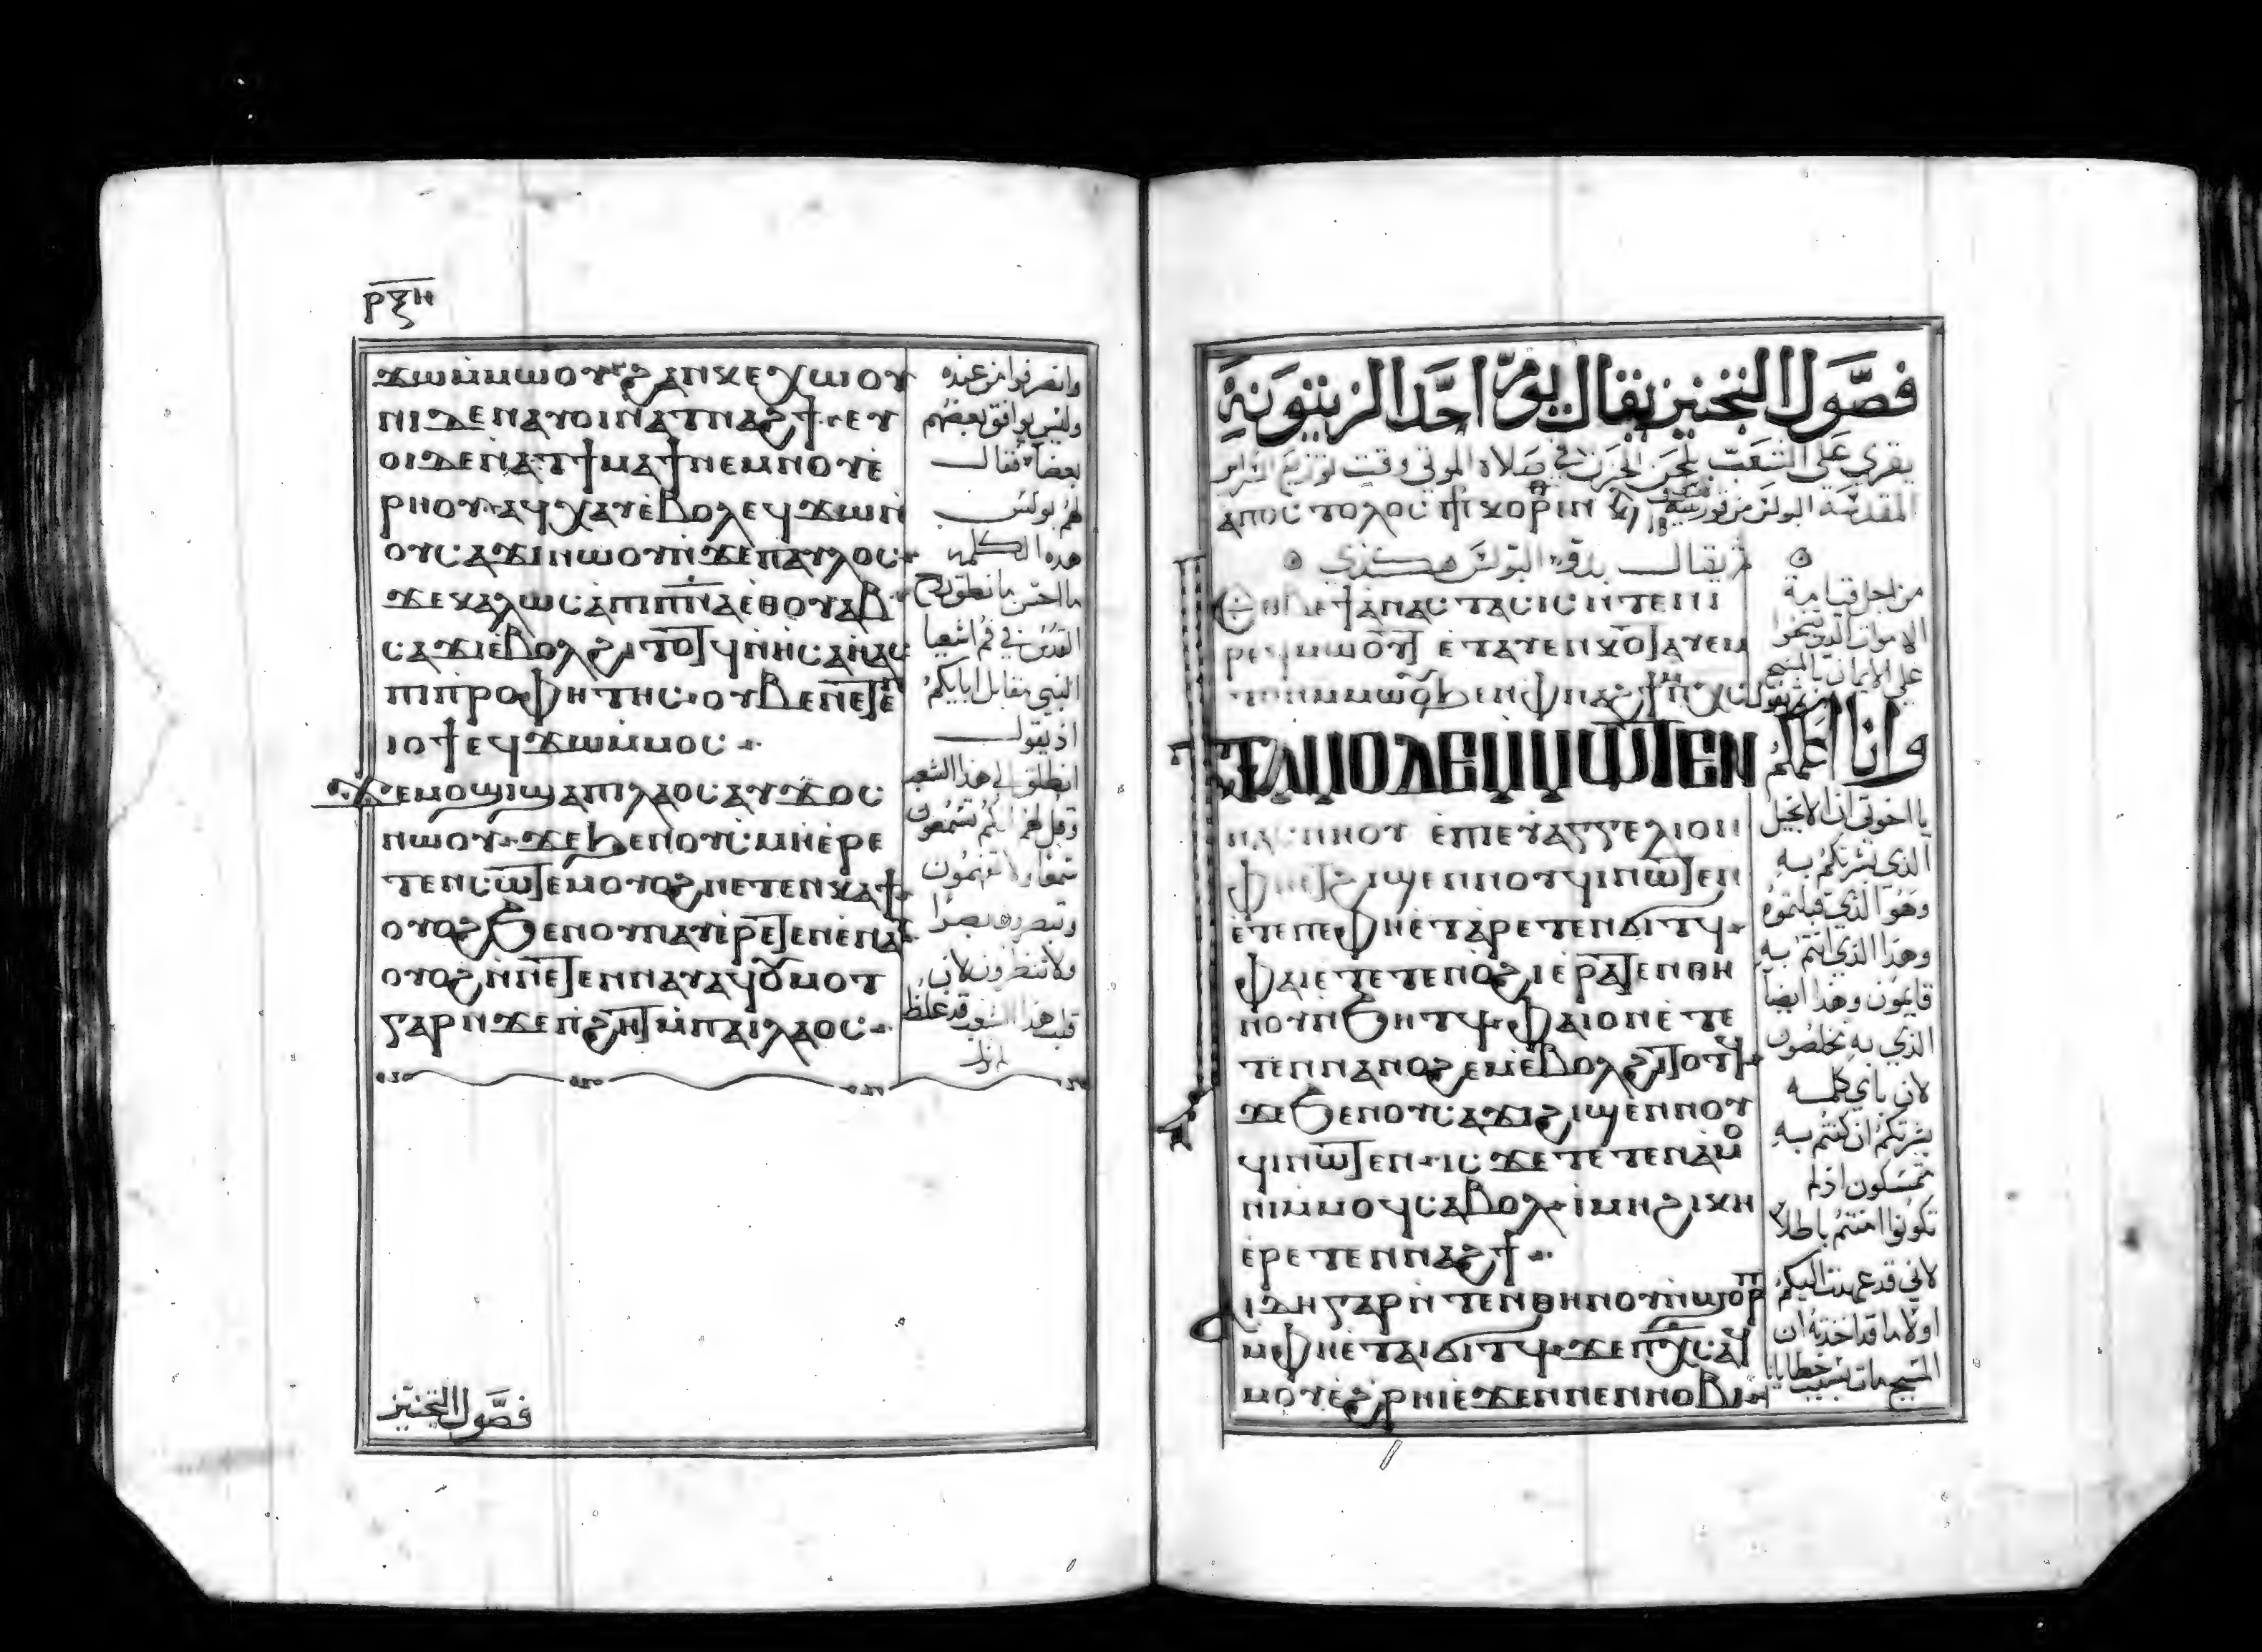 ⲣⲝⲏ
ϫⲱⲙⲙⲱⲟⲩ ϩⲁⲛⲕⲉⲭⲱⲟⲩ
ⲛⲓⲇⲉⲛⲁⲩⲟⲓⲛⲁⲧⲛⲁϩϯ ⲉⲩ
ⲟⲓⲇⲉⲛⲁⲧϯⲙⲁϯⲛⲉⲙⲛⲟⲩⲉ
ⲣⲏⲟⲩ ⲁϥⲭⲁⲩⲉⲃⲟⲗⲉϥϫⲱⲛ
ⲟⲩⲥⲁϫⲓⲛⲱⲟⲩⲛϫⲉⲡⲁⲩⲗⲟⲥ
ϫⲉⲕⲁⲗⲱⲥⲁⲡⲓⲡⲛⲁⲉⲑⲟⲩⲁⲃ
ⲥⲁϫⲓⲉⲃⲟⲗϩⲓⲧⲟⲧϥⲛⲏⲥⲁⲏⲁⲥ
ⲡⲓⲡⲣⲟⲫⲏⲧⲏⲥ ⲟⲩⲃⲉⲛⲉⲧⲉ
ⲓⲟϯⲉϥϫⲱⲙⲙⲟⲥ
ϫⲉⲙⲟϣⲓϣⲁⲡⲓⲗⲁⲟⲥⲁⲩϫⲟⲥ
ⲛⲱⲟⲩ ϫⲉϧⲉⲛⲟⲩⲥⲙⲏⲉⲣⲉ
ⲧⲉⲛⲥⲱⲧⲉⲙⲟⲩⲟϩⲛⲉⲧⲉⲛⲕⲁϯ
ⲟⲩⲟϩϧⲉⲛⲟⲩⲛⲁⲩⲉⲣⲉⲧⲉⲛⲉⲛⲁⲩ
ⲟⲩⲟϩⲛⲛⲉⲧⲉⲛⲛⲁⲩⲁϥⲟⲩⲙⲟⲧ
ⲅⲁⲣⲛϫⲉⲡϩⲏⲧⲙⲡⲁⲓⲗⲁⲟⲥ
وانصرفوا من عنده
وليس يوافق بعضهم
بعضا فقال
لهم بولس
هذه الكلمه
ما احسن ما نطق روح
القدس في فم اشعيا
النبي مقابل ابايكم
اذ يقول
انطلق الي هذا الشعب
وقل لهم انكم تسمعون
سمعا ولا تفهمون
وتبصرون بصرا
ولا تنظرون لان
قلب هذا الشعب قد غلظ
فصول التجنيز
فصول التجنيز يقال يوم احد الزيتونة
المقدسة البولس من قورنتية
ⲁⲡⲟⲥⲧⲟⲗⲟⲥ ⲕⲟⲣⲓⲛ
ⲉⲑⲃⲉϯⲁⲛⲁⲥⲧⲁⲥⲓⲥⲛⲧⲉⲛⲓ
ⲣⲉϥⲙⲱⲟⲩⲧ ⲉⲧⲁⲩⲉⲛⲕⲟⲧ ⲁⲩⲉⲙ
من اجل قيامة
الاموات الذين تنيحوا
علي الايمان بالمسيح
ϯⲧⲁⲙⲟⲇⲉⲙⲙⲱⲧⲉⲛ
ⲛⲁⲥⲛⲏⲟⲩ ⲉⲡⲓⲉⲩⲁⲅⲅⲉⲗⲓⲟⲛ
ⲫⲏⲉⲧϩⲓϣⲉⲛⲛⲟⲩϥⲓⲛⲱⲧⲉⲛ
ⲉⲧⲉⲡⲉⲫⲏⲉⲧⲁⲣⲉⲧⲉⲛϭⲓⲧϥ
ⲫⲁⲓⲉⲧⲉⲧⲉⲛⲟϩⲓⲉⲣⲁⲧⲉⲛⲑⲏ
ⲛⲟⲩⲛϧⲏⲧϥ ⲫⲁⲓⲟⲛⲉⲧⲉ
ⲧⲉⲛⲛⲁⲛⲟϩⲉⲙⲉⲃⲟⲗϩⲓⲧⲟⲧϥ
ϫⲉϧⲉⲛⲟⲩⲥⲁϫⲓϩⲓϣⲉⲛⲛⲟⲩ
ϥⲓⲛⲱⲧⲉⲛ ⲓⲥϫⲉⲧⲉⲧⲉⲛⲁⲙⲟ
ⲛⲓⲙⲙⲟϥⲥⲁⲃⲟⲗ ⲓⲙⲏϩⲓⲕⲏ
ⲉⲣⲉⲧⲉⲛⲛⲁϩϯ
ⲁⲓϯⲅⲁⲣⲛⲧⲉⲛⲑⲏⲛⲟⲩⲛϣⲟⲣⲡ
ⲙⲫⲏⲉⲧⲁⲓϭⲓⲧϥ ϫⲉⲡⲭⲥⲁϥ
ⲙⲟⲩⲉϩⲣⲏⲓⲉϫⲉⲛⲛⲉⲛⲛⲟⲃⲓ
وانا اعلمكم
يا اخوتي ان الانجيل
الذي بشرتكم به
وهو الذي قبلتموه
وهذا الذي انتم به
قايمون وهذا ايضا
الذي به تخلصون
لان باي كلمه
بشرتكم ان كنتم به
متمسكون اذ لم
تكونوا امنتم باطلا
لاني قد عهدت اليكم
اولا ما قد اخذته ان
المسيح مات بسبب خطايانا